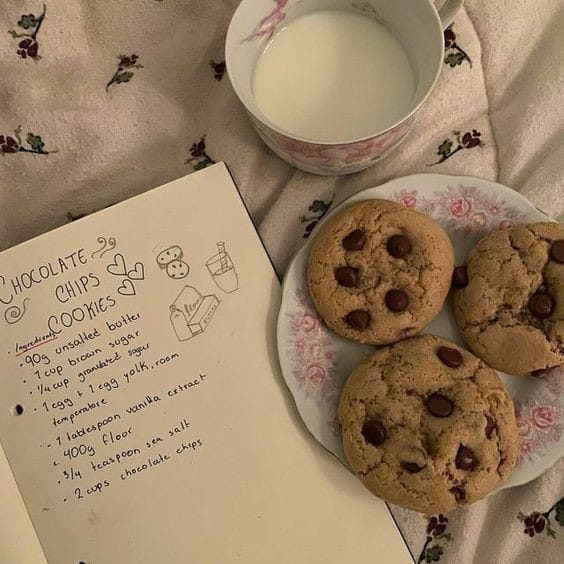 CHOCOLATE
CHIPS
COOKIES
Ingredients
• 90g unsalted butter
• 1 cup brown sugar
• 1/4 cup granulated sugar
• 1 egg + 1 egg yolk, room
temperature
• 1 tablespoon vanilla extract
• 400g floor
• 3/4 teaspoon sea salt
• 2 cups chocolate chips